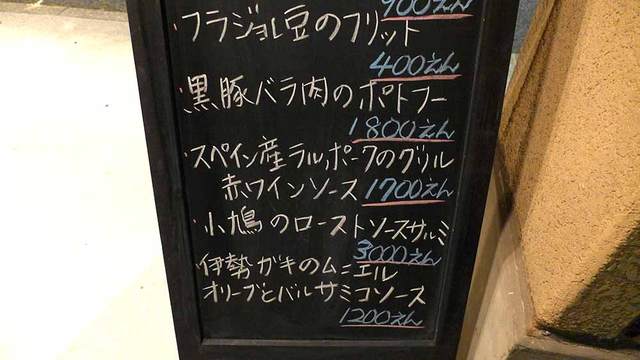 900えん
・フラジョル豆のフリット
400えん
・黒豚バラ肉のポトフー
1800えん
・スペイン産ラル,ポークのグリル
赤ワインソース 1700えん
・小鳩のローストソースサルミ
3000えん
・伊勢ガキのムニエル
オリーブとバルサミコソース
1200えん